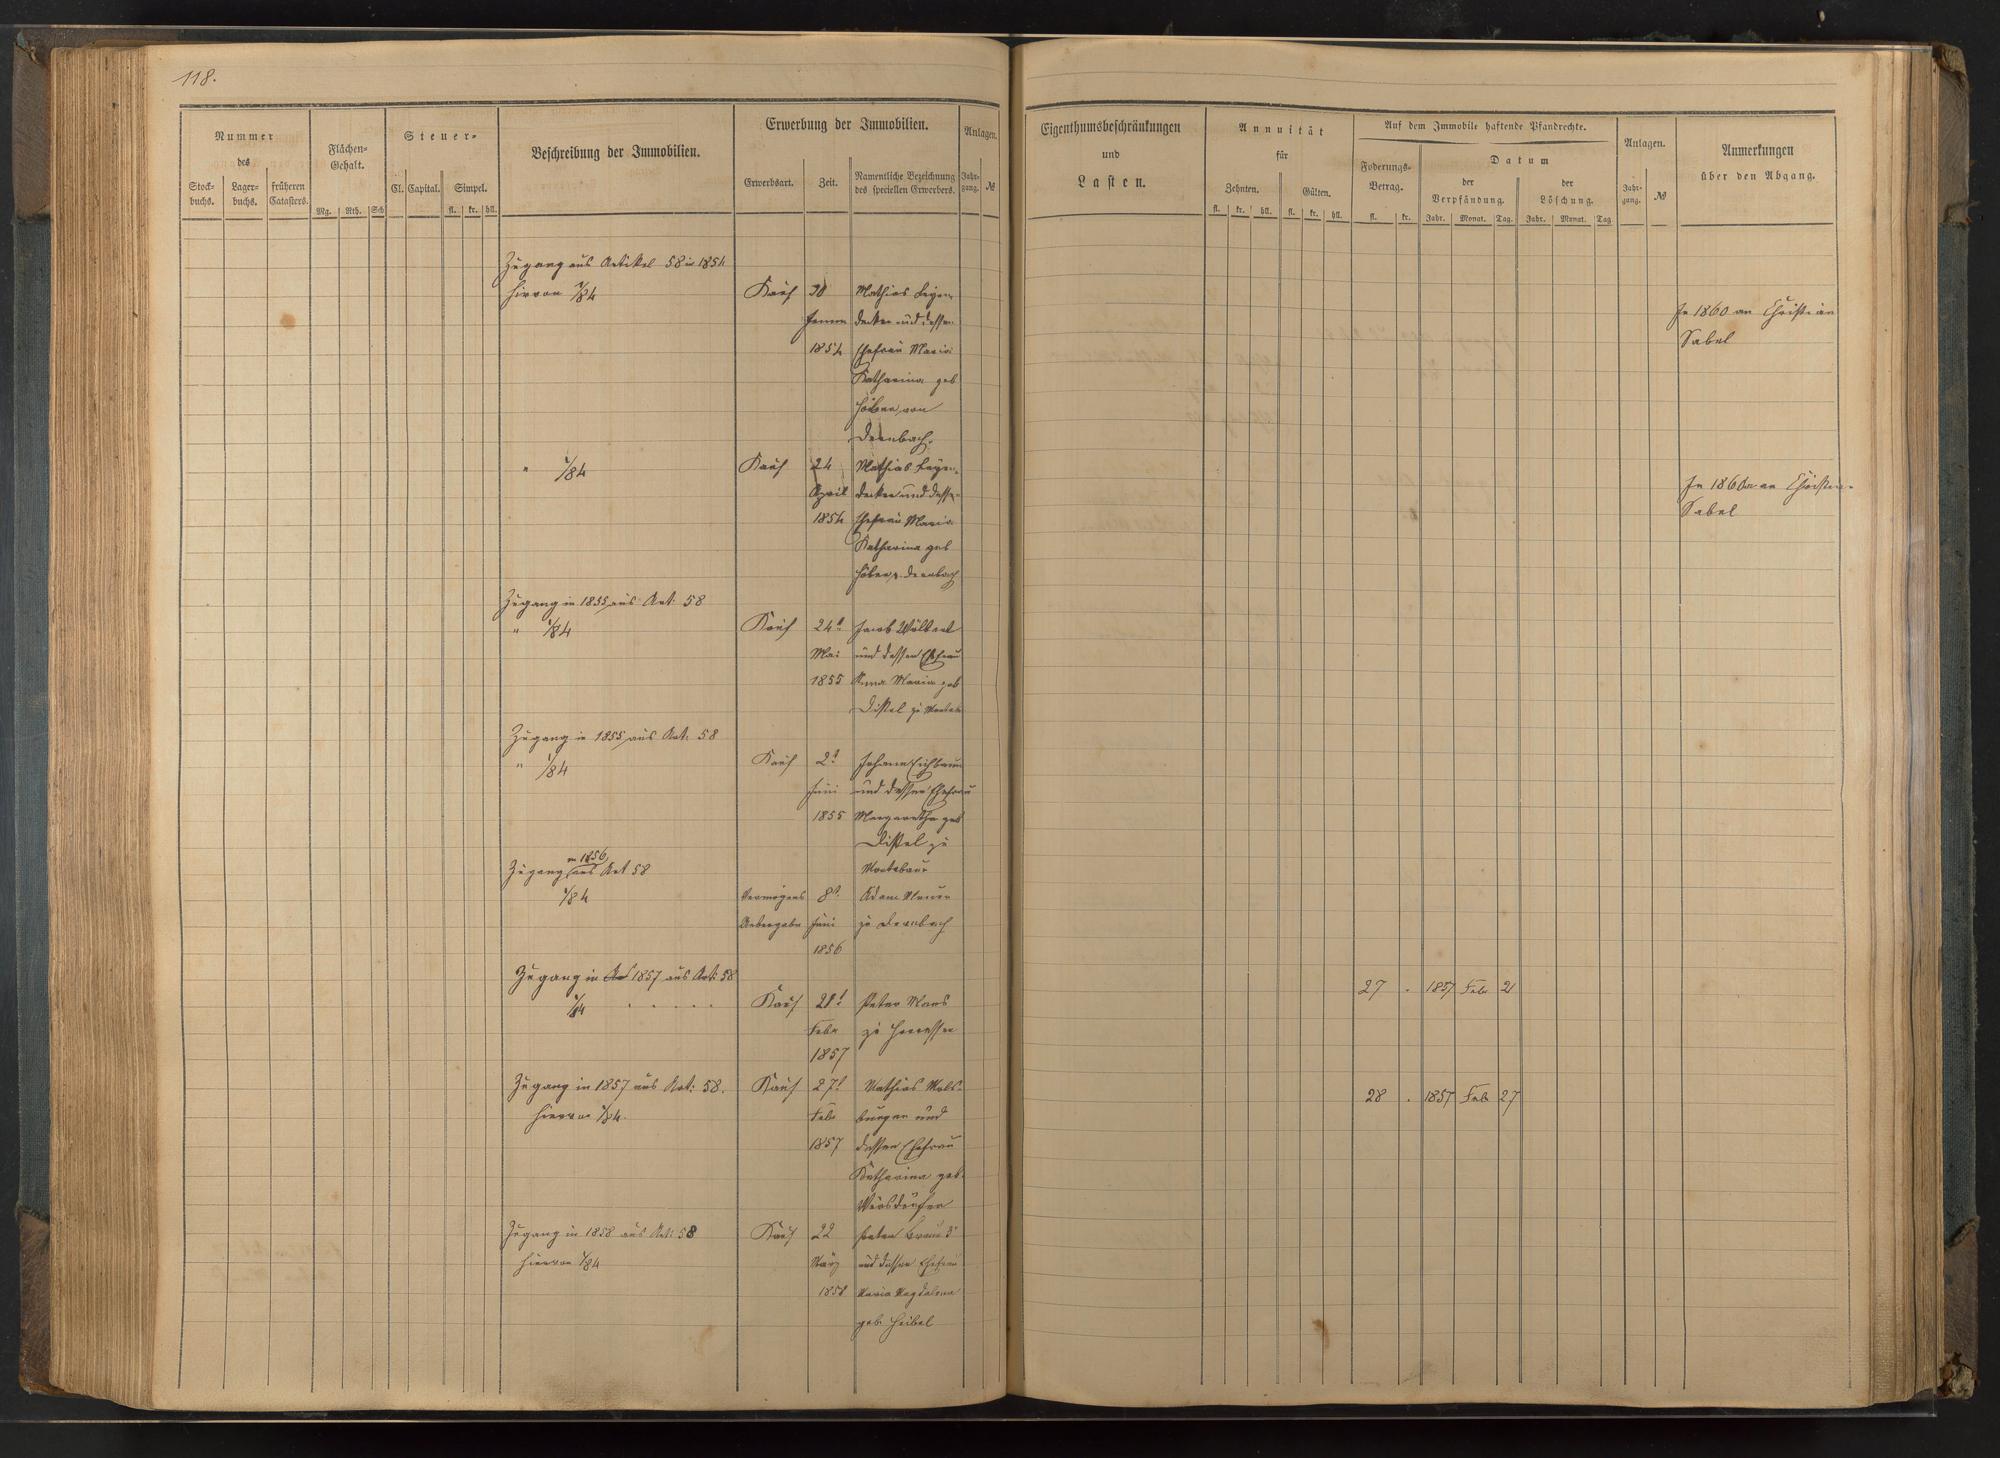 118.
Nummer
des
Stock-
buchs.
Lager-
buchs.
früheren
Catasters.
Flächen-
Gehalt.
Mg. Rth. Sch
Steuer-
Cl. Capital. Simpel.
fl. kr. hll.
Beschreibung der Immobilien.
Erwerbung der Immobilien.
Erwerbsart. Zeit. Namentliche Bezeichnung
des speciellen Erwerbers.
Anlagen.
Jahr-
gang. №
Eigenthumsbeschränkungen
und
Lasten.
Annuität
für
Zehnten. Gülten.
fl. kr. hll. fl. kr. hll.
Auf dem Immobile haftende Pfandrechte.
Foderungs-
Betrag.
fl. kr.
Datum
der
Verpfändung.
Jahr. Monat. Tag.
der
Löschung.
Jahr. Monat. Tag
Anlagen.
Jahr-
gang. №
Anmerkungen
über den Abgang.
Zugang aus Artikel 58 in 1854
hiervon 1/84 Kauf 30 Mathias Leyen-
decker und dessen
1854 Ehefrau Maria
Katharina geb
von
Dernbach.
In 1860 an Christian
Sabel
" 1/84 Kauf 24 Mathias Leyen-
April decker und dessen
1854 Ehefrau Maria
Katharina geb
v. Dernbach
In 1860 an Christian
Sabel
Zugang in 1855 aus Art. 58
" 1/84 Kauf 24t Jacob Wölbert
Mai und dessen Ehefrau
1855 Anna Maria geb
Distel zu
Zugang in 1855 aus Art. 58
" 1/84 Kauf 2t Johann Eichbaum
Juni und dessen Ehefrau
1855 Margaretha geb
Distel zu
Montabaur
in 1856
Zugang aus Art 58
1/84 Vermögens 8t Adam
Uebergabe Juni zu Dernbach
1856
Zugang in 1857 aus Art: 58
1/84 Kauf 21t Peter
Febr zu
1857
27 . 1857 Febr 21
Zugang in 1857 aus Art: 58. Kauf 27t Mathias Mols-
hiervon 1/84 Febr berger und
1857 dessen Ehefrau
Katharina geb.
Wörsdörfer
28 . 1857 Feb 27
Zugang in 1858 aus Art: 58 Kauf 22 Peter
hiervon 1/84 März und dessen Ehefrau
1858 Maria Magdalena
geb. Heibel